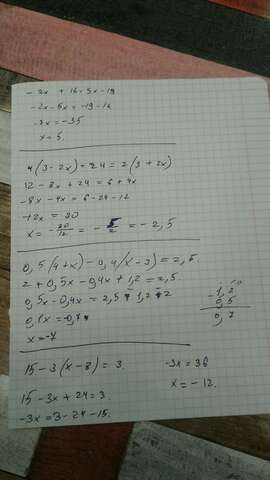 - 2x + 16 = 5x - 19
-2x - 5x = -19 - 16
-7x = -35
x = 5.
4(3 - 2x) + 24 = 2(3 + 2x)
12 - 8x + 24 = 6 + 4x
-8x - 4x = 6 - 24 - 12
-12x = 30
x = - 30/12 = - 5/2 = - 2,5
0,5(4+x) - 0,4(x-3) = 2,5.
2 + 0,5x - 0,4x + 1,2 = 2,5.
0,5x - 0,4x = 2,5 - 1,2 - 2
0,1x = -0,7
x = -7
-1,2
0,5
0,7
15 - 3(x - 8) = 3
15 - 3x + 24 = 3.
-3x = 3 - 24 - 15.
-3x = 36
x = - 12.